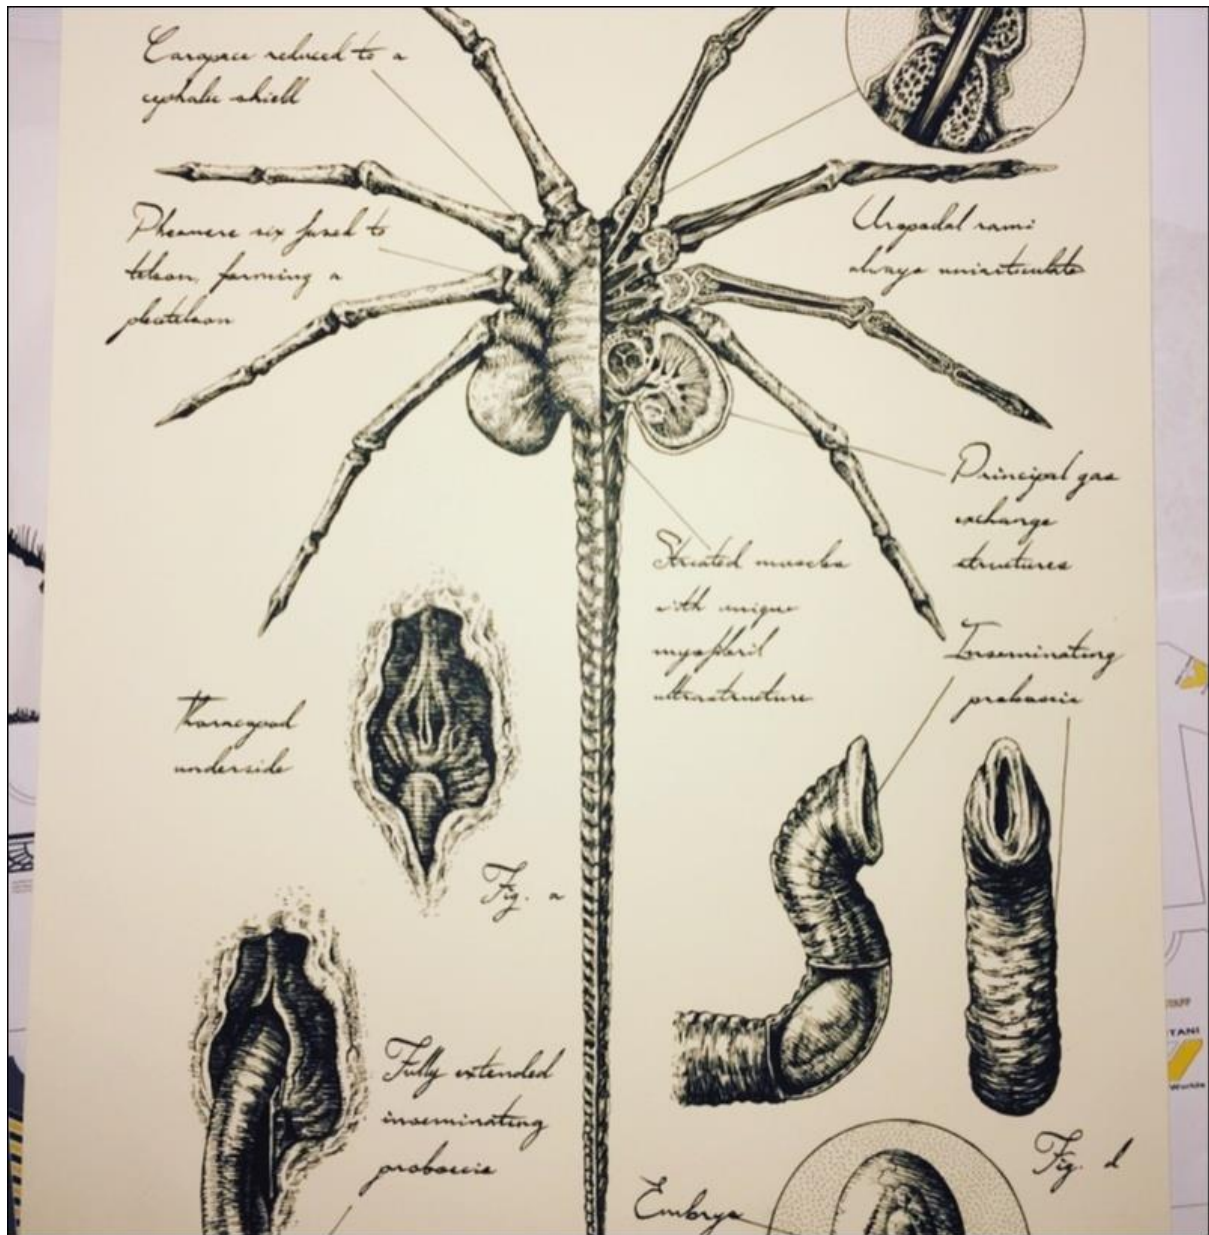 Carapace reduced to a
cephalic shield
Pleomere six fused to
telson, forming a
pleotelson
Uropodal rami
always uniarticulate
Principal gas
exchange
structures
Striated muscles
with unique
myofibril
ultrastructure
Inseminating
proboscis
Thoracopod
underside
Fig. a
Fully extended
inseminating
proboscis
Fig. d
Embryo
TANI